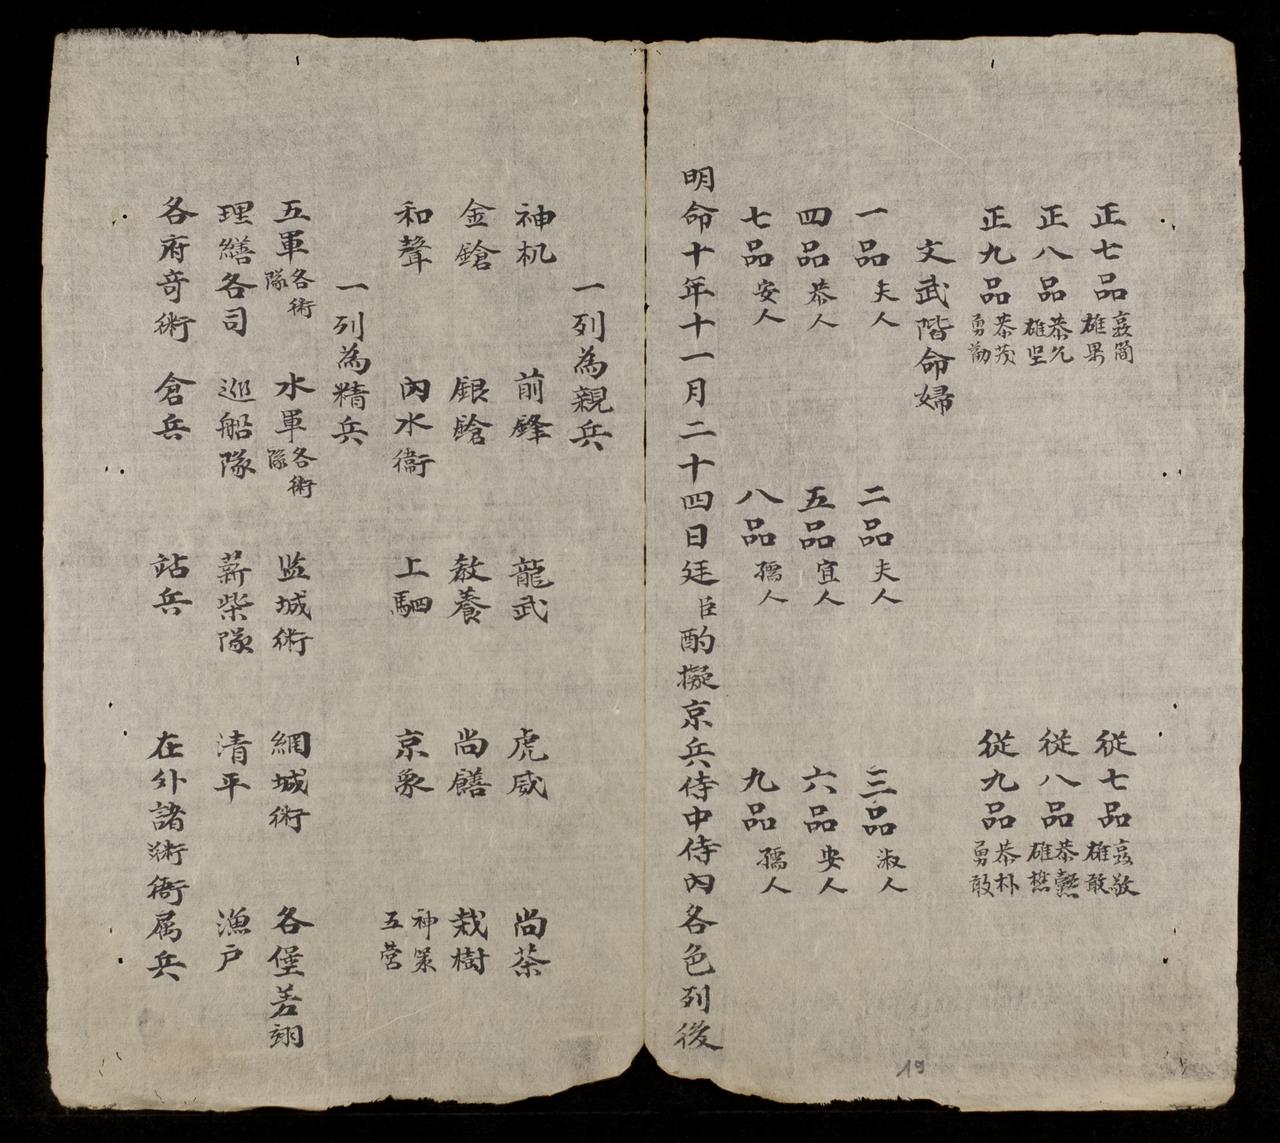 正七品 簡雄果 從七品 敬雄敢
正八品 恭允雄坚 從八品 恭懿雄
正九品 恭茂勇 從九品 恭朴勇敢
文武階命婦
一品夫人 二品夫人 三品淑人
四品恭人 五品宜人 六品安人
七品安人 八品孺人 九品孺人
明命十年十一月二十四日廷臣酌擬京兵侍中侍內各色列後
一列為親兵
神机 前鋒 龍武 虎威 尚茶
金鎗 銀鎗 教養 尚饍 栽樹
和聲 內水衞 上駟 京象 神策五营
一列為精兵
五軍各術隊 水軍各術隊 监城術 網城術 各堡
理繕各司 巡船隊 薪柴隊 清平 漁户
各府奇術 倉兵 站兵 在外諸術衙属兵
19